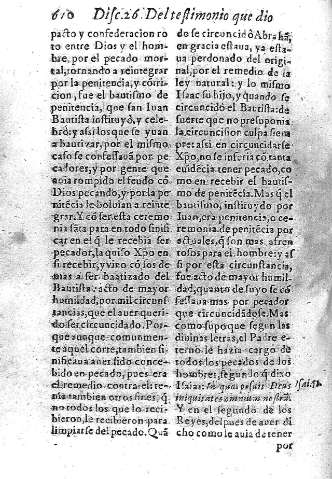 610 Disc.26. Del testimonio que dio
pacto y confederacion ro
to entre Dios y el hom-
bre, por el pecado mor-
tal, tornando a reintegrar
por la penitencia, y cõtri-
cion, fue el bautismo de
penitencia, que san Iuan
Bautista instituyò, y cele-
brò: y assi los que se yuan
a bautizar, por el mismo
caso se confessauã por pe-
cadores, y por gente que
auia rompido el feudo cõ
Dios pecando, y por la pe-
nitẽcia le boluian a reinte
grar. Y cõ ser esta ceremo
nia
para en todo
car en el q̃ le recebia ser
pecador, la quiso Xpo en
su recebir, y vino cõ los de
mas a ser baptizado del
Bautista: acto de mayor
humildad, por mil circunf
tancias, que el auer queri-
do ser circuncidado. Por-
que aunque comunmen-
te aquel corte, tambien si-
nificaua auer sido conce-
bido en pecado, pues era
el remedio contra el: te-
nia tambien otros fines, q̃
no todos los que lo reci-
bieron, le recibieron para
limpiarse del pecado. Quã
do se circuncidò Abrahã,
en gracia estaua, ya esta-
ua perdonado del origi-
nal, por el remedio de la
ley natural: y lo mismo
Isaac su hijo, y quando se
circuncidò el Batista: de
suerte que no presuponia
la circuncision culpa siem
pre: assi en circuncidarse
Xpo, no se inferia cõ tanta
euidẽcia tener pecado, co
mo en recebir el bautis-
mo de penitẽcia. Mas q̃ el
bautismo, instituydo por
Iuan, era penitencia, o ce-
remonia de penitẽcia por
actuales, q̃ son mas afren
tosos para el hombre: y as
si por esta circunstancia,
fue acto de mayor humil
dad, quanto de suyo se cõ
fessaua mas por pecador
que circuncidãdose. Mas
como supo que segun las
diuinas letras, el Padre e-
terno le hazia cargo de
todos los pecados de los
hombres, segun lo q̃ dixo
Isaias: In quo posuit Deus
iniquitates omnium nostrũ.
Isai. 53.
Y en el segundo de los
Reyes, despues de auer di
cho como le auia de tener
por